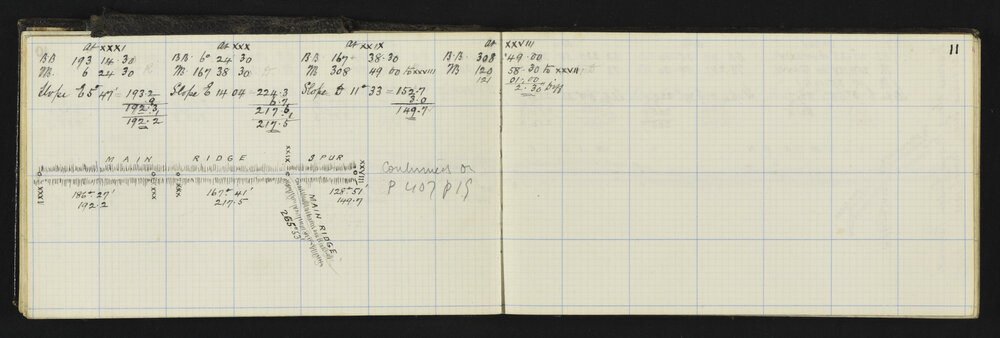 11
at XXXI
BB 193 14.30
M. 6 24 30 R
Slope E 5° 47' = 193.2
.9
192.3
.1
192.2
at XXX
BB. 6° 24 30
M. 167 38 30
Slope E 14 04 = 224.3
6.7
217.6
.1
217.5
at XXIX
BB. 167° 38.30
M 308 49 00 to XXVIII
Slope D 11° 33 = 152.7
3.0
149.7
at XXVIII
B.B. 308 49.00
M 120 58.30 to XXVII
121 01.00
2.30 Diff
MAIN RIDGE XXIX SPUR XXVIII
XXXI XXX XXX
186° 27'
192.2
167° 41'
217.5
128° 51'
149.7
MAIN RIDGE
265° 53'
Continued on
P 407 p 19